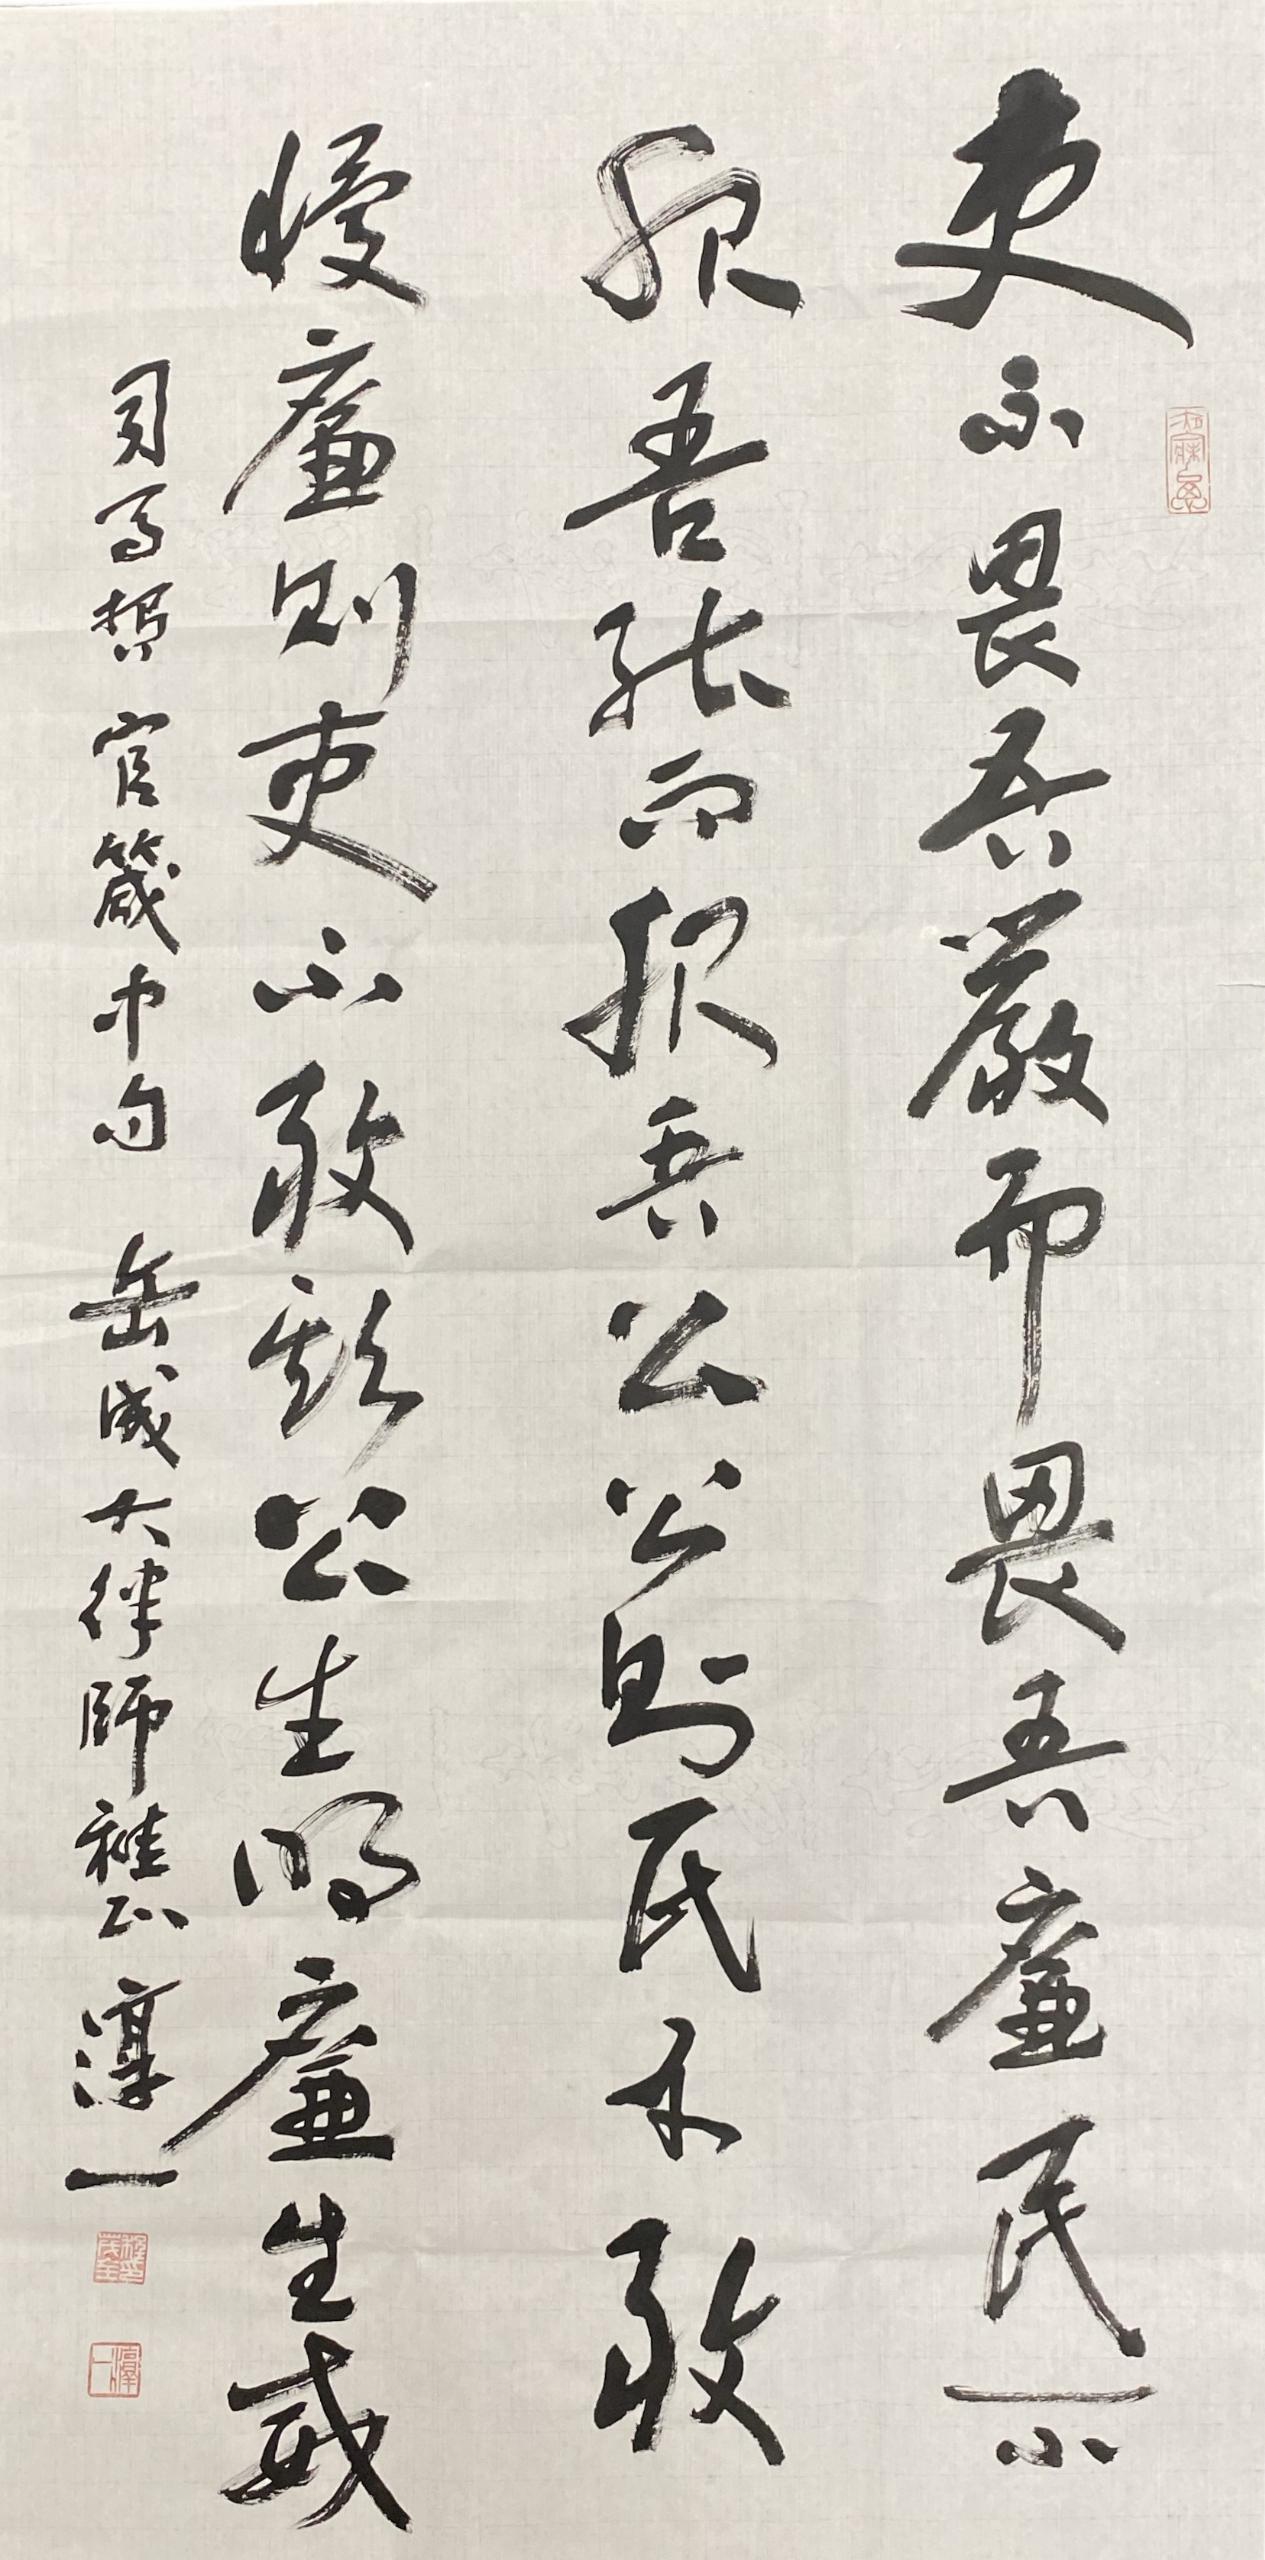 吏不畏吾嚴而畏吾廉民不
服吾能而服吾公公則民不敢
慢廉則吏不敢欺公生明廉生威
司馬哲官箴中句 岳成大律師雅正 淳一
淳一